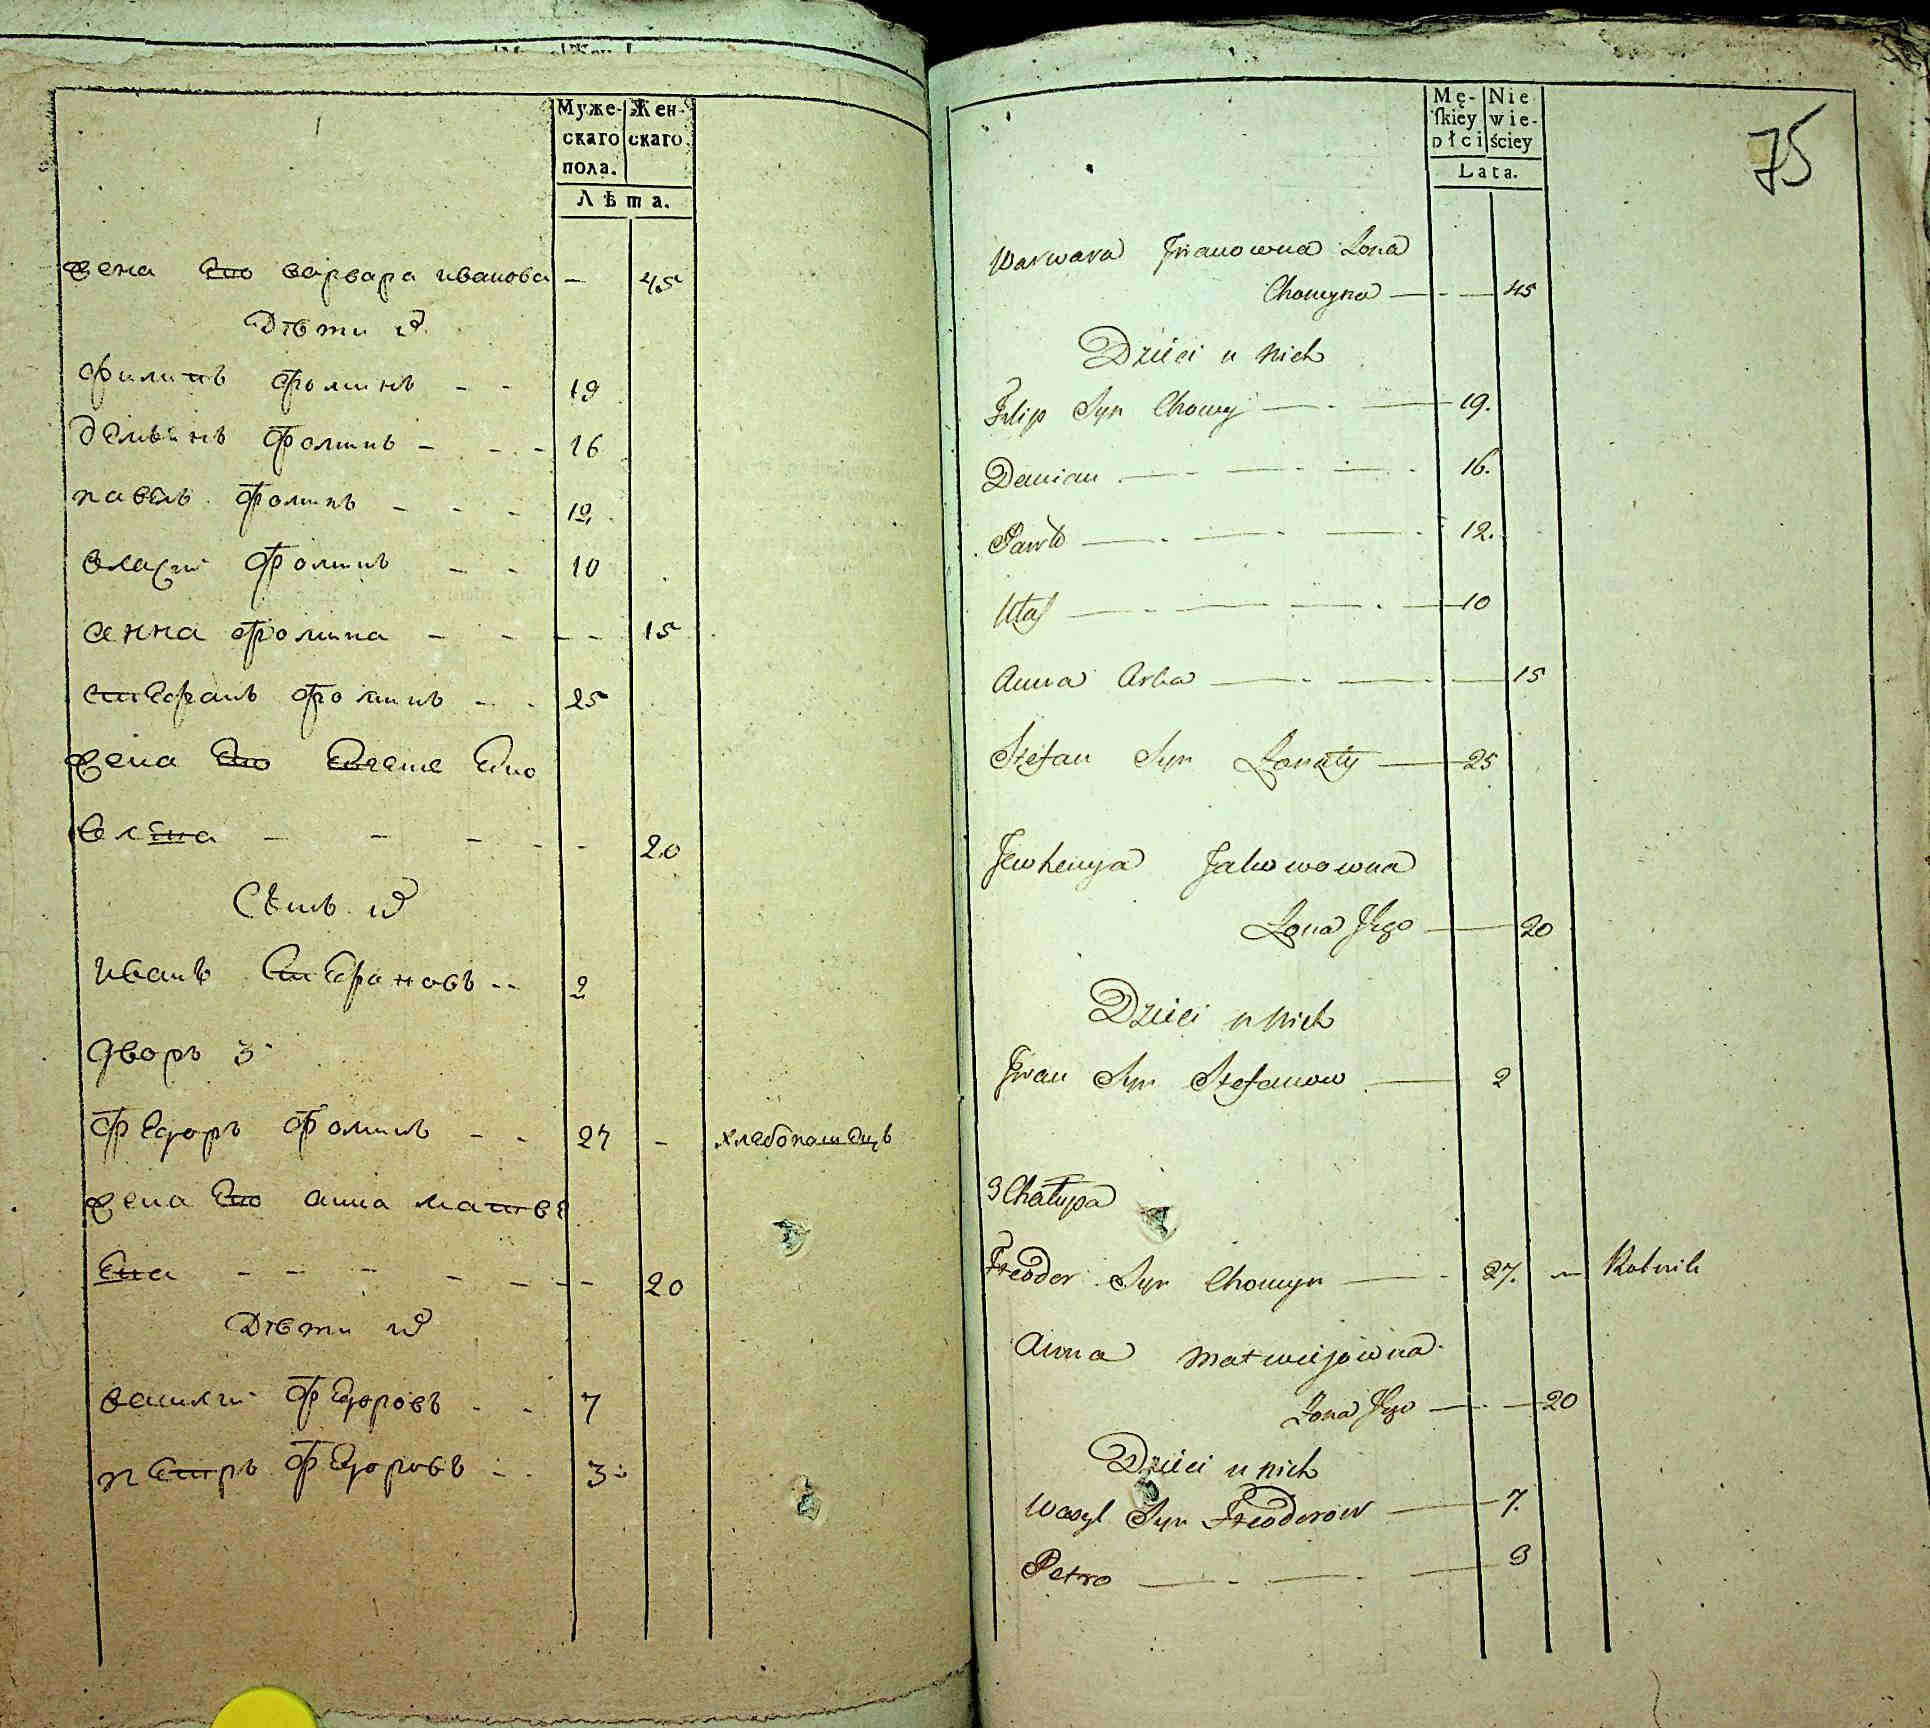 Муже-
скаго
пола.
Жен-
скаго.
Лѣта.
жена Его варвара иванова — 45
Дѣти ихъ
филипъ фоминъ - - 19
демьянъ фоминъ - - - 16
павелъ фоминъ - - - 12
власъ фоминъ - - 10
анна фомина - - - - 15
степанъ фоминъ - - 25
жена Его Евгенїе Яко
влена - - - - - 20
Сынъ ихъ
иванъ Степановъ - - 2
дворъ 3
федоръ фоминъ - - 27 - хлебопашецъ
жена Его анна матвѣ
Ена - - - - - - - 20
Дѣти ихъ
василий федоровъ - - 7
петръ федоровъ - - 3
75
Mę-
ſkiey
płci
Nie
wie-
ściey
Lata.
Warwara Iwanowna Zona
Chomyna — - — 45
Dzieci u nich
Filip Syn Chomy — - — 19.
Damian — - — - — - 16.
Pawło — - — - — - 12.
Włas — - — - — - — 10
Anna — - — - — 15
Stefan Syn — 25
Jewhenya Jakowowna
Zona Jego — 20
Dzieci u nich
Iwan Syn Stefanow — 2
3 Chałupa
Fteodor Syn Chomyn — - 27. — Rolnik
Anna Matwiejowna
Zona Jego — - — 20
Dzieci u nich
Wasyl Syn Fteodorow — 7.
Petro — - — - — 3